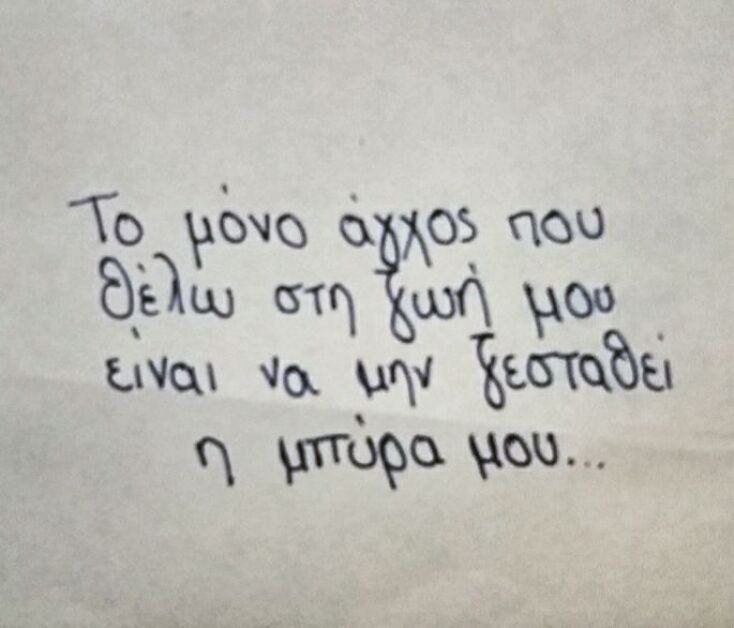 Το μόνο άγχος που
θέλω στη ζωή μου
είναι να μην ζεσταθεί
η μπύρα μου...